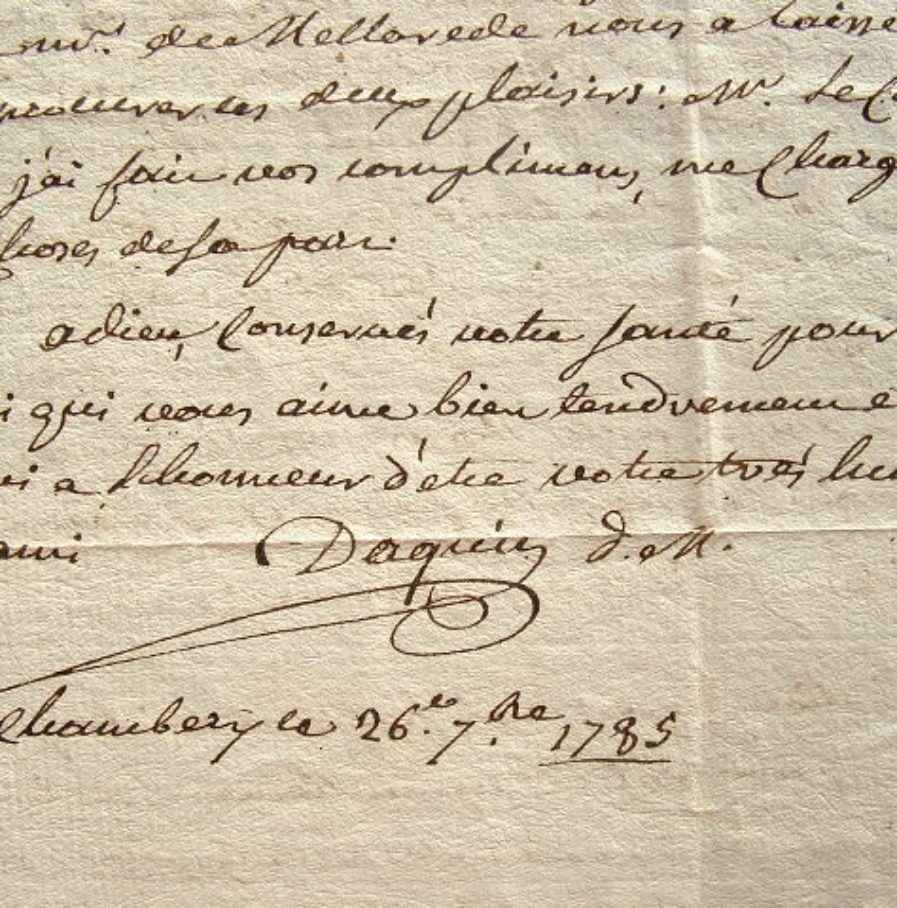 mr. de Mellarede nous a laissé
procurer ces deux plaisirs: Mr. Le C
j'ai fait vos complimens, me Charg
choses de sa part.
adieu, Conservés votre santé pour
i qui vous aime bien tendrement e
ui a l'honneur d'etre votre trés hu
ami Daquin, d. M.
Chambery le 26.e 7.bre 1785